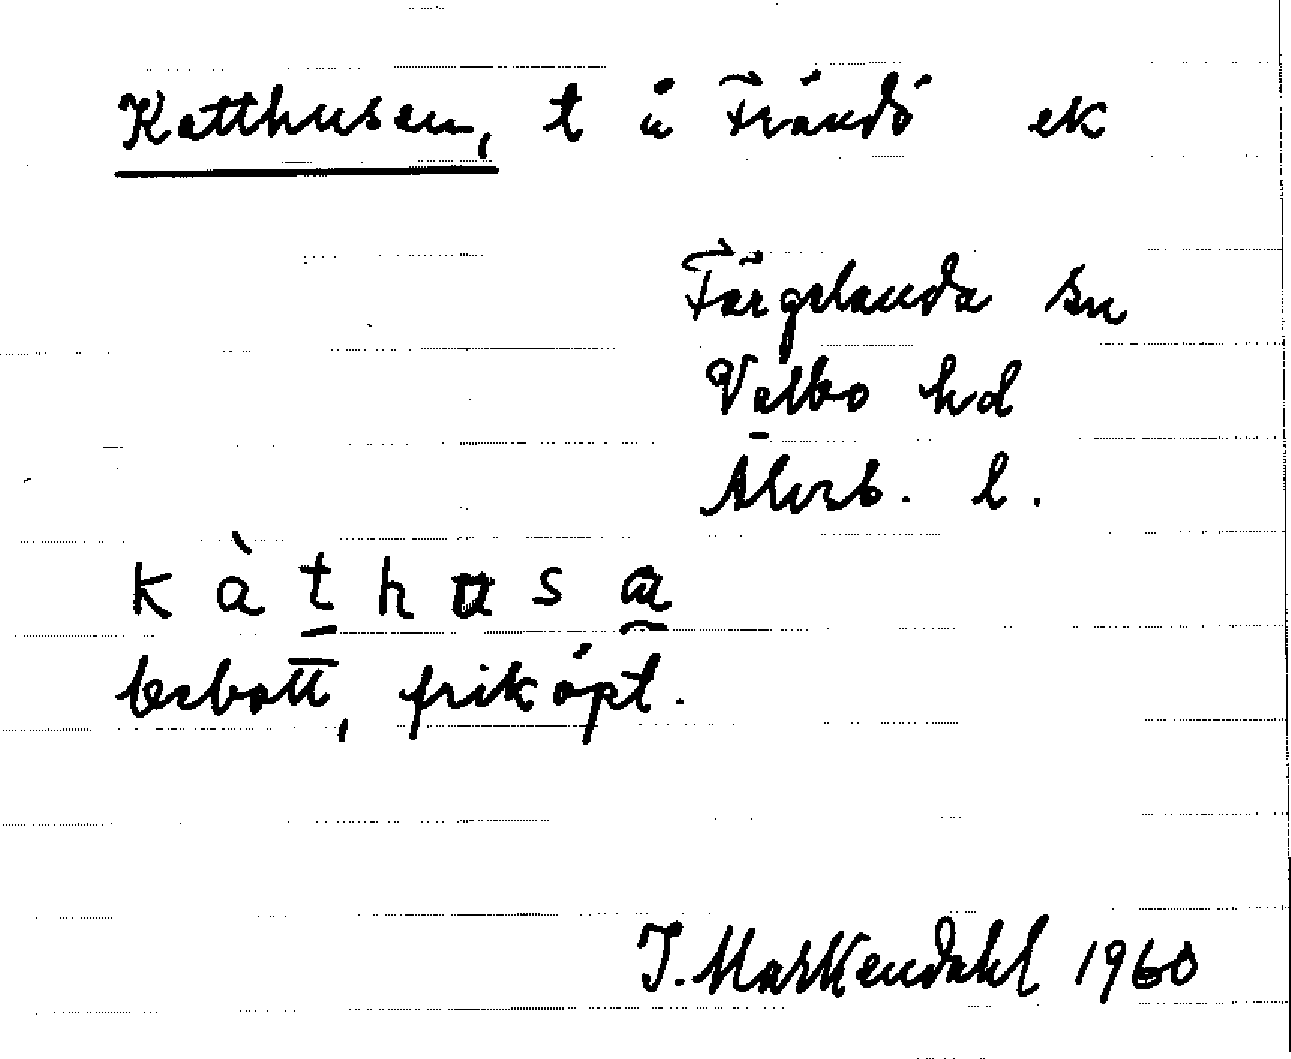 Katthusen, t u Frändö ek
Färgelanda sn
Valbo hd
Älvsb. l.
kàthusa
bebott, friköpt.
I. Markendahl 1960